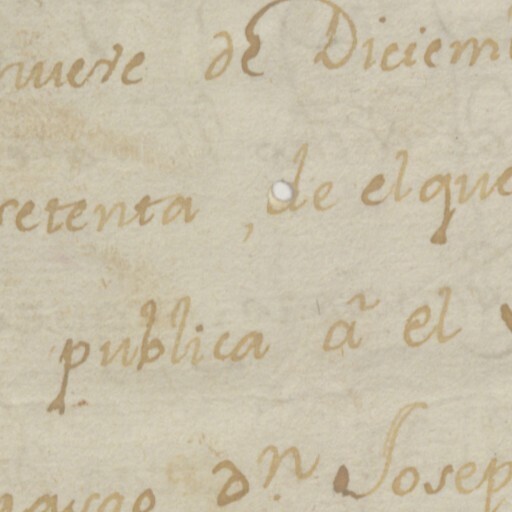 nueve de Diciem
setenta, de el que
publica â el
Dn. Josep